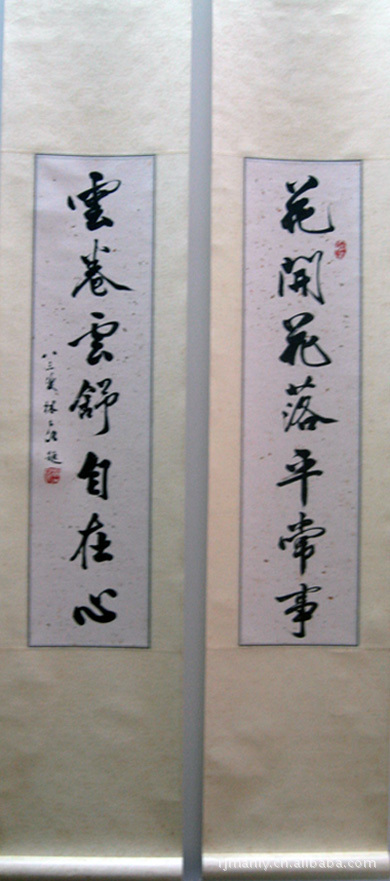 花開花落平常事
雲卷雲舒自在心
rjmanly.cn.alibaba.com